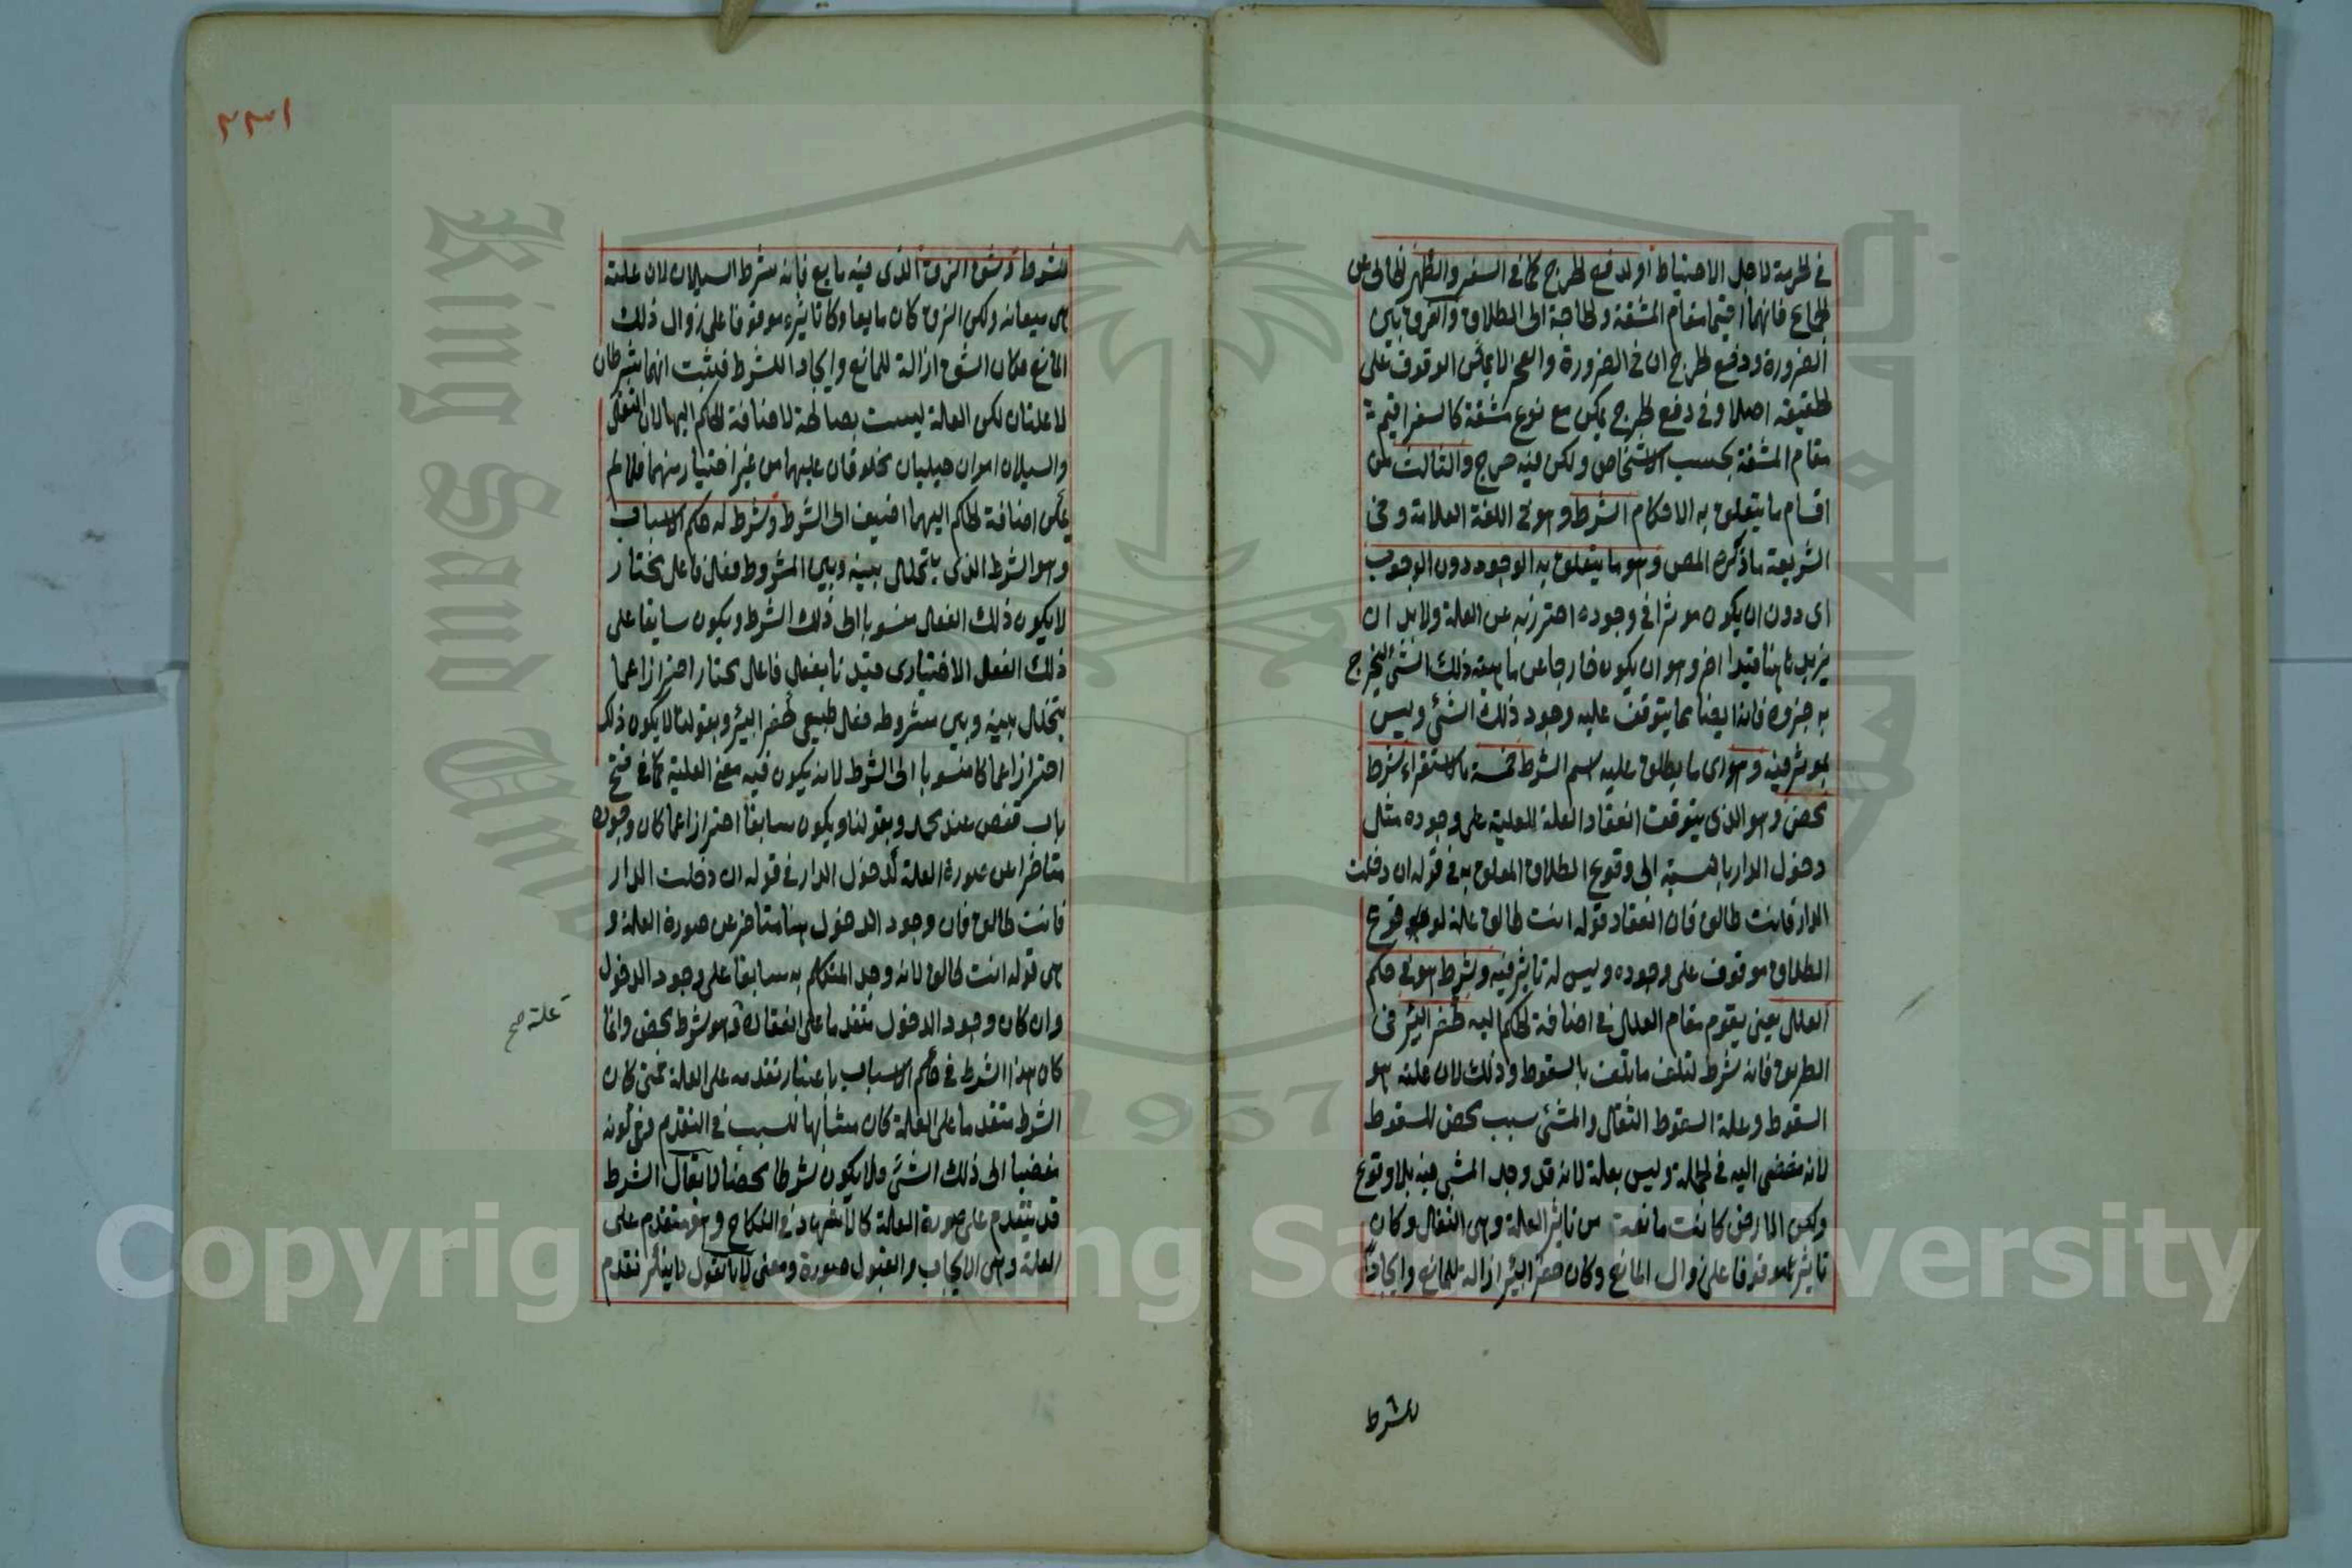 في الحرمة لاجل الاحتياط او لدفع الحرج كما في السفر والطهر الخالي عن
الجماع فانهما اقيما مقام المشقة والحاجة الى الطلاق والفرق بين
الضرورة ودفع الحرج ان في الضرورة والعجز لا يمكن الوقوف على
الحقيقة اصلا وفي دفع الحرج يمكن مع نوع مشقة كالسفر اقيم
مقام المشقة بحسب الاشخاص ولكن فيه حرج والثالث من
اقسام ما يتعلق به الاحكام الشرط وهو في اللغة العلامة وفي
الشريعة ما ذكره المص وهو ما يتعلق به الوجود دون الوجوب
اى دون ان يكون موثرا في وجوده احترز به عن العلة ولا بد ان
يزيد هاهنا قيدا اخر وهو ان يكون خارجا عن ماهية ذلك الشئ ليخرج
به جزوه فانه ايضا مما يتوقف عليه وجود ذلك الشئ وليس
بموثر فيه وهو اى ما يطلق عليه اسم الشرط خمسة بالاستقراء شرط
محض وهو الذى يتوقف انعقاد العلة للعلية على وجوده مثل
دخول الدار بالنسبة الى وقوع الطلاق المعلق به في قوله ان دخلت
الدار فانت طالق فان انعقاد قوله انت طالق علة لوقوع
الطلاق موقوف على وجوده وليس له تاثير فيه وشرط هو في حكم
العلل يعنى يقوم مقام العلل في اضافة الحكم اليه كحفر البئر في
الطريق فانه شرط لتلف ما يتلف بالسقوط وذلك لان علته هو
السقوط وعلة السقوط الثقل والمشى سبب محض للسقوط
لانه مفضى اليه في الجملة وليس بعلة لانه قد وجد المشى فيه بلا وقوع
ولكن الارض كانت مانعة من تاثير العلة وهى الثقل وكان
تاثيره موقوفا على زوال المانع وكان حفر البئر ازالة للمانع وايجادا
للشرط
٢٣١
للشرط وشق الزق الذى فيه مايع فانه شرط السيلان لان علته
هى ميعانه ولكن الزق كان مانعا وكان تاثيره موقوفا على زوال ذلك
المانع فكان الشق ازالة للمانع وايجادا للشرط فيثبت انهما شرطان
لا علتان لكن العلة ليست بصالحة لاضافة الحكم اليها لان الثقل
والسيلان امران جبليان مخلوقان عليهما من غير اختيار منهما فلما لم
يمكن اضافة الحكم اليهما اضيف الى الشرط وشرط له حكم الاسباب
وهو الشرط الذى يتخلل بينه وبين المشروط فعل فاعل مختار
لا يكون ذلك الفعل منسوبا الى ذلك الشرط ويكون سابقا على
ذلك الفعل الاختيارى قيدنا بفعل فاعل مختار احترازا عما
يتخلل بينه وبين مشروطه فعل طبيعى كحفر البئر وبقولنا لا يكون ذلك
احترازا عما كان منسوبا الى الشرط لانه يكون فيه معنى العلية كما في فتح
باب قفص عند محمد وبقولنا ويكون سابقا احترازا عما كان وجوده
متاخرا عن صورة العلة كدخول الدار في قوله ان دخلت الدار
فانت طالق فان وجود الدخول هنا متاخر عن صورة العلة و
هى قوله انت طالق لانه وجد المتكلم به سابقا على وجود الدخول
وان كان وجود الدخول متقدما على انعقاده فهو شرط محض وانما
علة صح
كان هذا الشرط في حكم الاسباب باعتبار تقدمه على العلة فمتى كان
الشرط متقدما على العلة كان مشابها للسبب في التقدم وفي كونه
مفضيا الى ذلك الشئ فلا يكون شرطا محضا لا يقال الشرط
قد يتقدم على صورة العلة كالاشهاد في النكاح وهو متقدم على
العلة وهى الايجاب والقبول صورة ومعنى لانا نقول تقدم